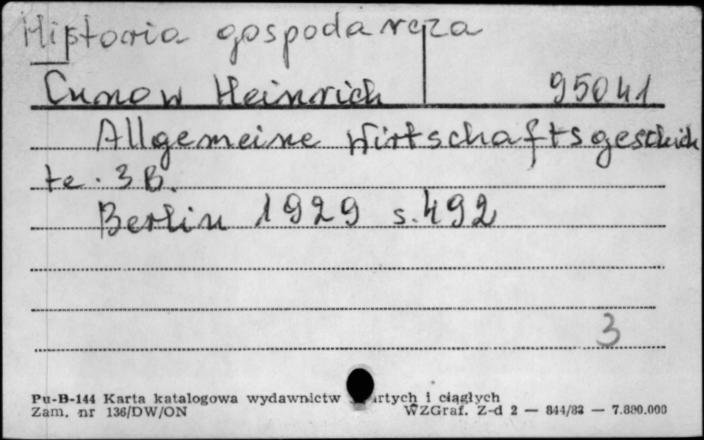 Historia gospodarcza
Cunow Heinrich 95041
Allgemeine Wirtschaftsgeschich
te. 3 B.
Berlin 1929 s. 492
3
Pu-B-144 Karta katalogowa wydawnictw
Zam. nr 136/DW/ON i ciągłych WZGraf. Z-d 2 — 844/83 — 7.880.000